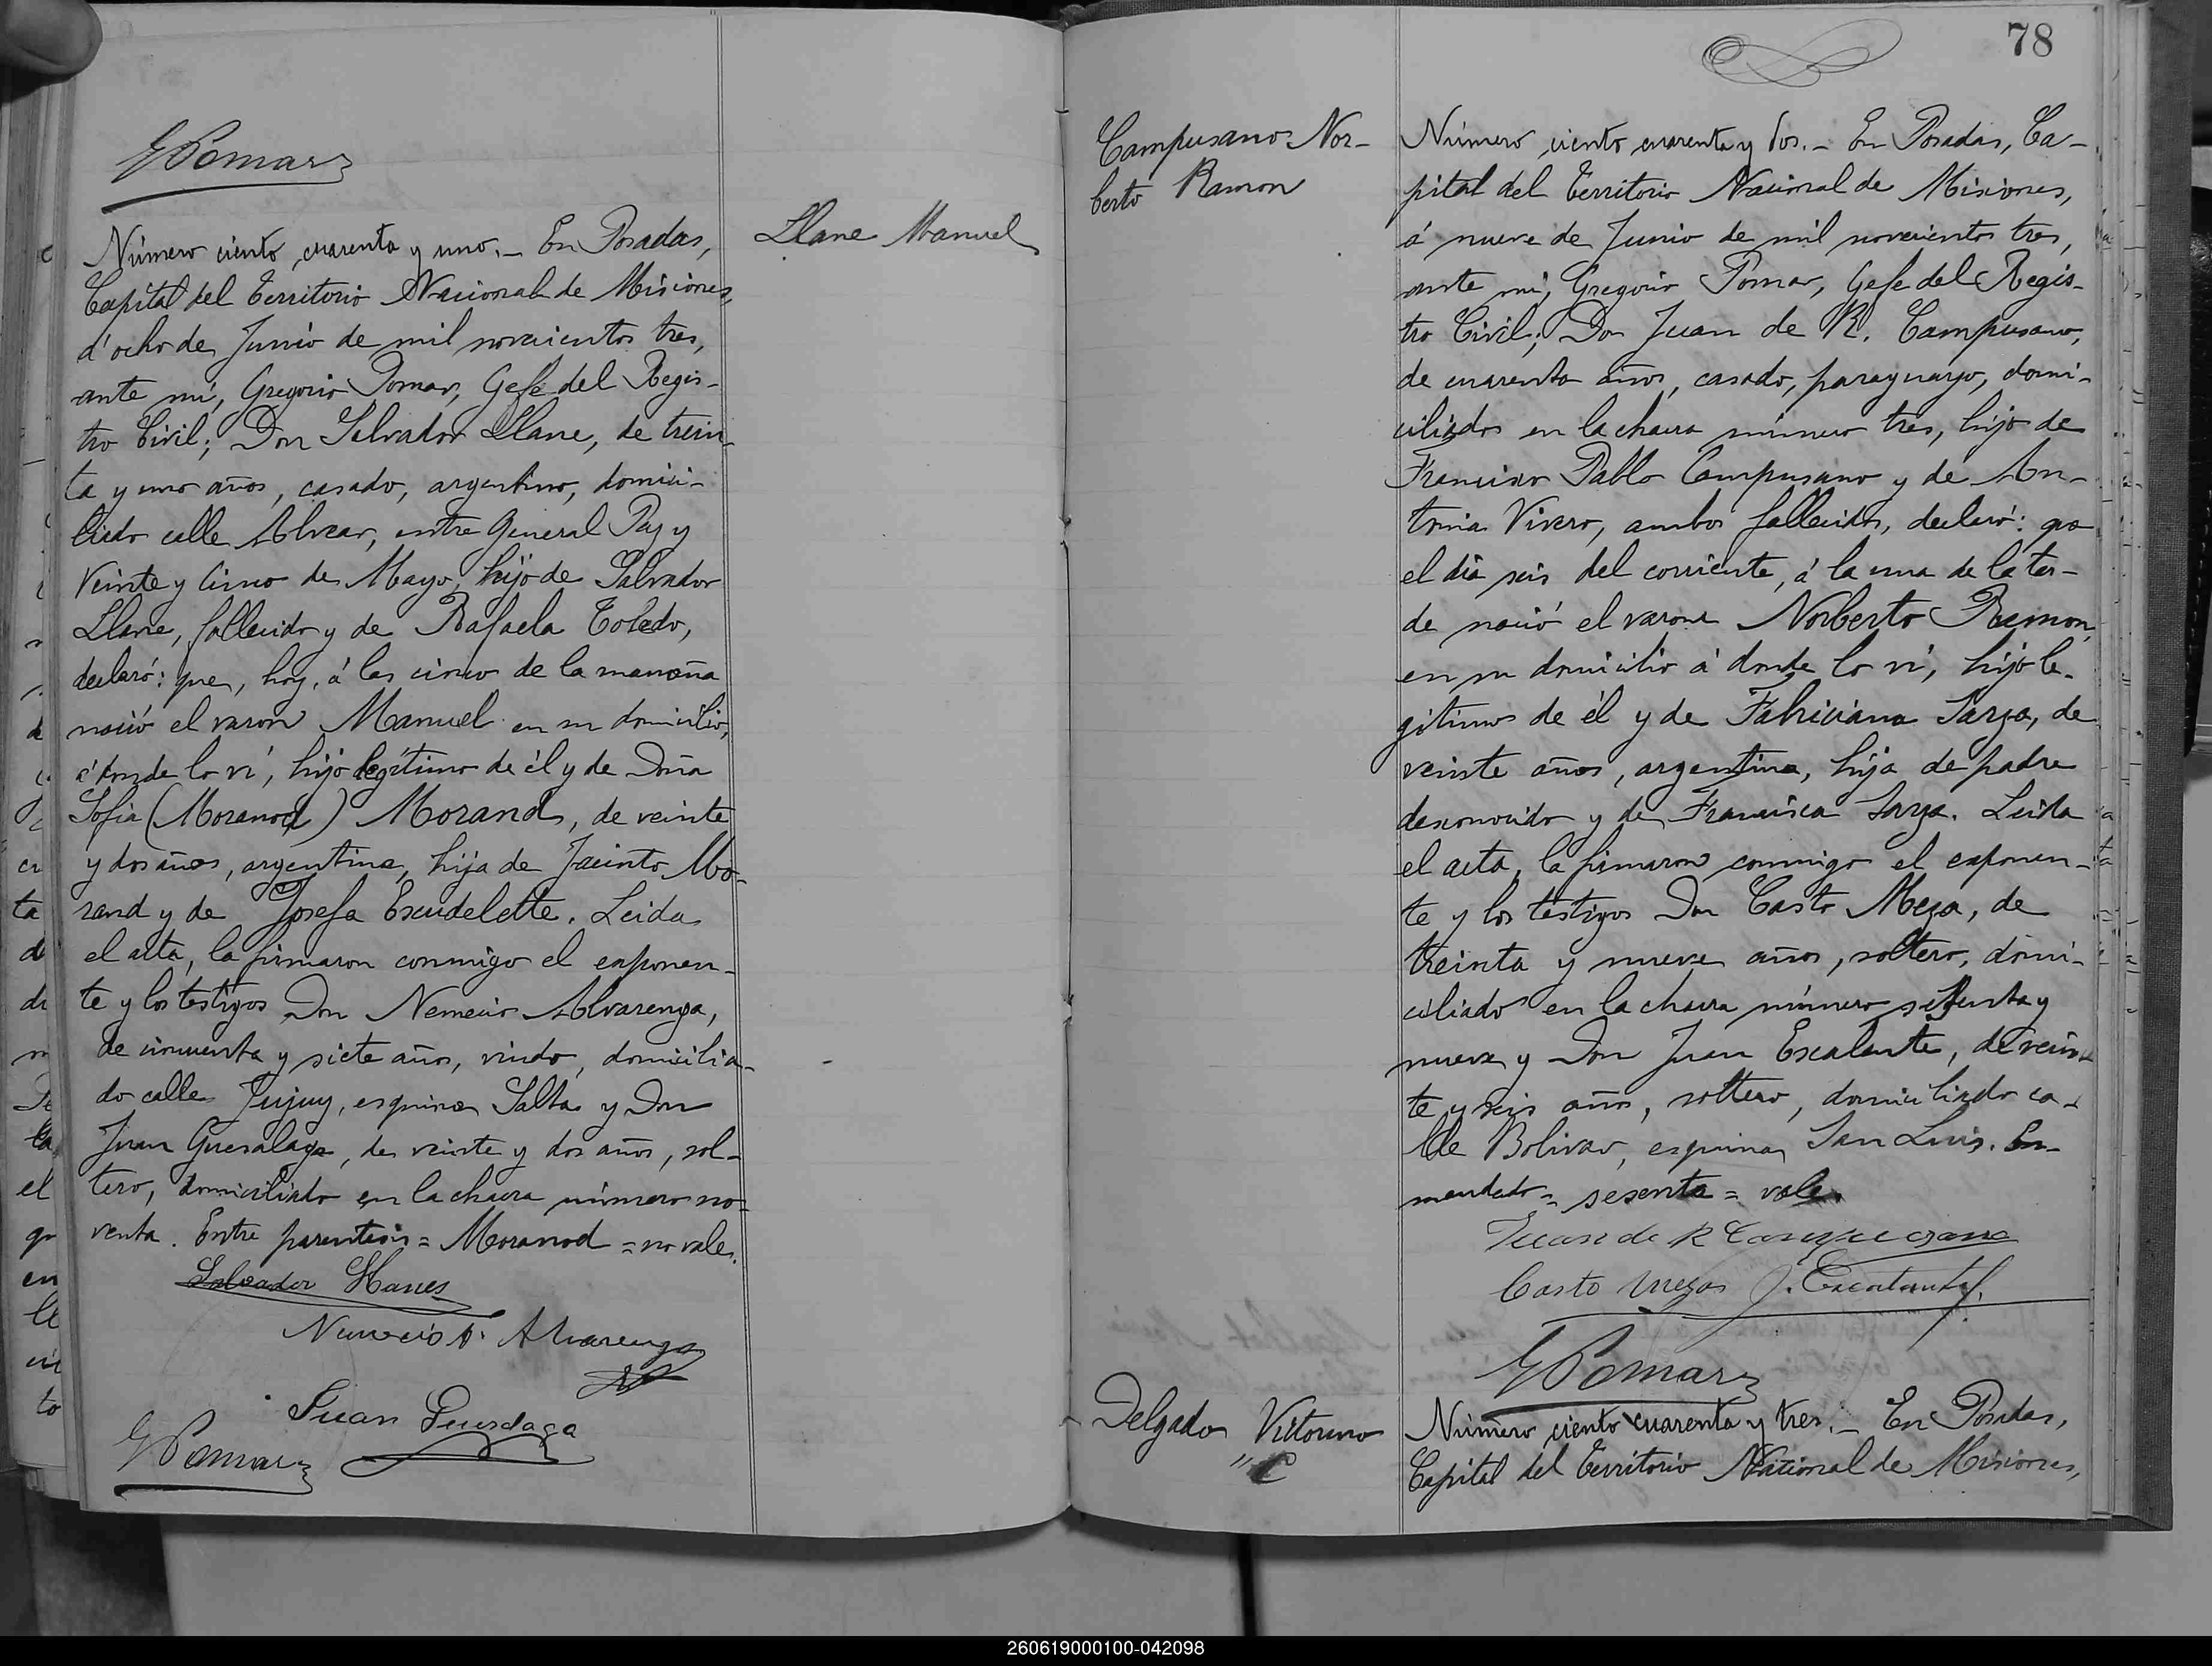 GPomar
Llane Manuel
Número ciento cuarenta y uno.- En Posadas,
Capital del Territorio Nacional de Misiones,
á ocho de Junio de mil novecientos tres,
ante mí, Gregorio Pomar, Gefe del Regis-
tro Civil; Don Salvador Llane, de trein-
ta y uno años, casado, argentino, domici-
liado calle Alvear, entre General Paz y
Veinte y Cinco de Mayo, hijo de Salvador
Llane, fallecido y de Rafaela Toledo,
declaró: que, hoy, á las cinco de la mañana
nació el varon Manuel en su domicilio,
á donde lo ví, hijo legítimo de él y de Doña
Sofia (Moranod) Morand, de veinte
y dos años, argentina, hija de Jacinto Mo-
rand y de Josefa Escudelette. Leida
el acta, la firmaron conmigo el exponen-
te y los testigos Don Nemecio Alvarenga,
de cincuenta y siete años, viudo, domicilia-
do calle Jujuy, esquina Salta y Don
Juan Guesalaga, de veinte y dos años, sol-
tero, domiciliado en la chacra número no-
venta. Entre parentesis = Moranod = no vale.
Salvador Llanes
Nemecio A. Alvarenga
Juan Guesalaga
GPomar
78
Campusano Nor-
berto Ramon
Número ciento cuarenta y dos.- En Posadas, Ca-
pital del Territorio Nacional de Misiones,
á nueve de Junio de mil novecientos tres,
ante mí, Gregorio Pomar, Gefe del Regis-
tro Civil; Don Juan de R. Campusano,
de cuarenta años, casado, paraguayo, domi-
ciliado en la chacra número tres, hijo de
Francisco Pablo Campusano y de An-
tonia Vivero, ambos fallecidos, declaró: que
el dia seis del corriente, á la una de la tar-
de nació el varon Norberto Ramon,
en su domicilio á donde lo ví, hijo le-
gitimo de él y de Fabriciana Sarza, de
veinte años, argentina, hija de padre
desconocido y de Francisca Sarza. Leida
el acta, la firmaron conmigo el exponen-
te y los testigos Don Casto Meza, de
treinta y nueve años, soltero, domi-
ciliado en la chacra número sesenta y
nueve y Don Juan Escalante, de vein-
te y seis años, soltero, domiciliado ca-
lle Bolivar, esquina San Luis. En-
mendado = sesenta = vale.
Juan de R Campusano
Casto Meza J. Escalante
GPomar
Delgado Victorino
" C
Número ciento cuarenta y tres.- En Posadas,
Capital del Territorio Nacional de Misiones,
260619000100-042098